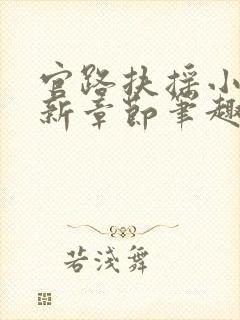 官路扶摇小
新章节笔趣
若浅舞